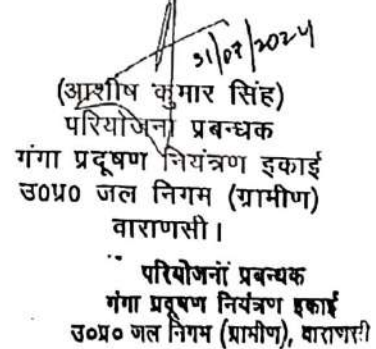 31/07/2024
(आशीष कुमार सिंह)
परियोजना प्रबन्धक
गंगा प्रदूषण नियंत्रण इकाई
उ०प्र० जल निगम (ग्रामीण)
वाराणसी।
परियोजना प्रबन्धक
गंगा प्रदूषण नियंत्रण इकाई
उ०प्र० जल निगम (ग्रामीण), वाराणसी